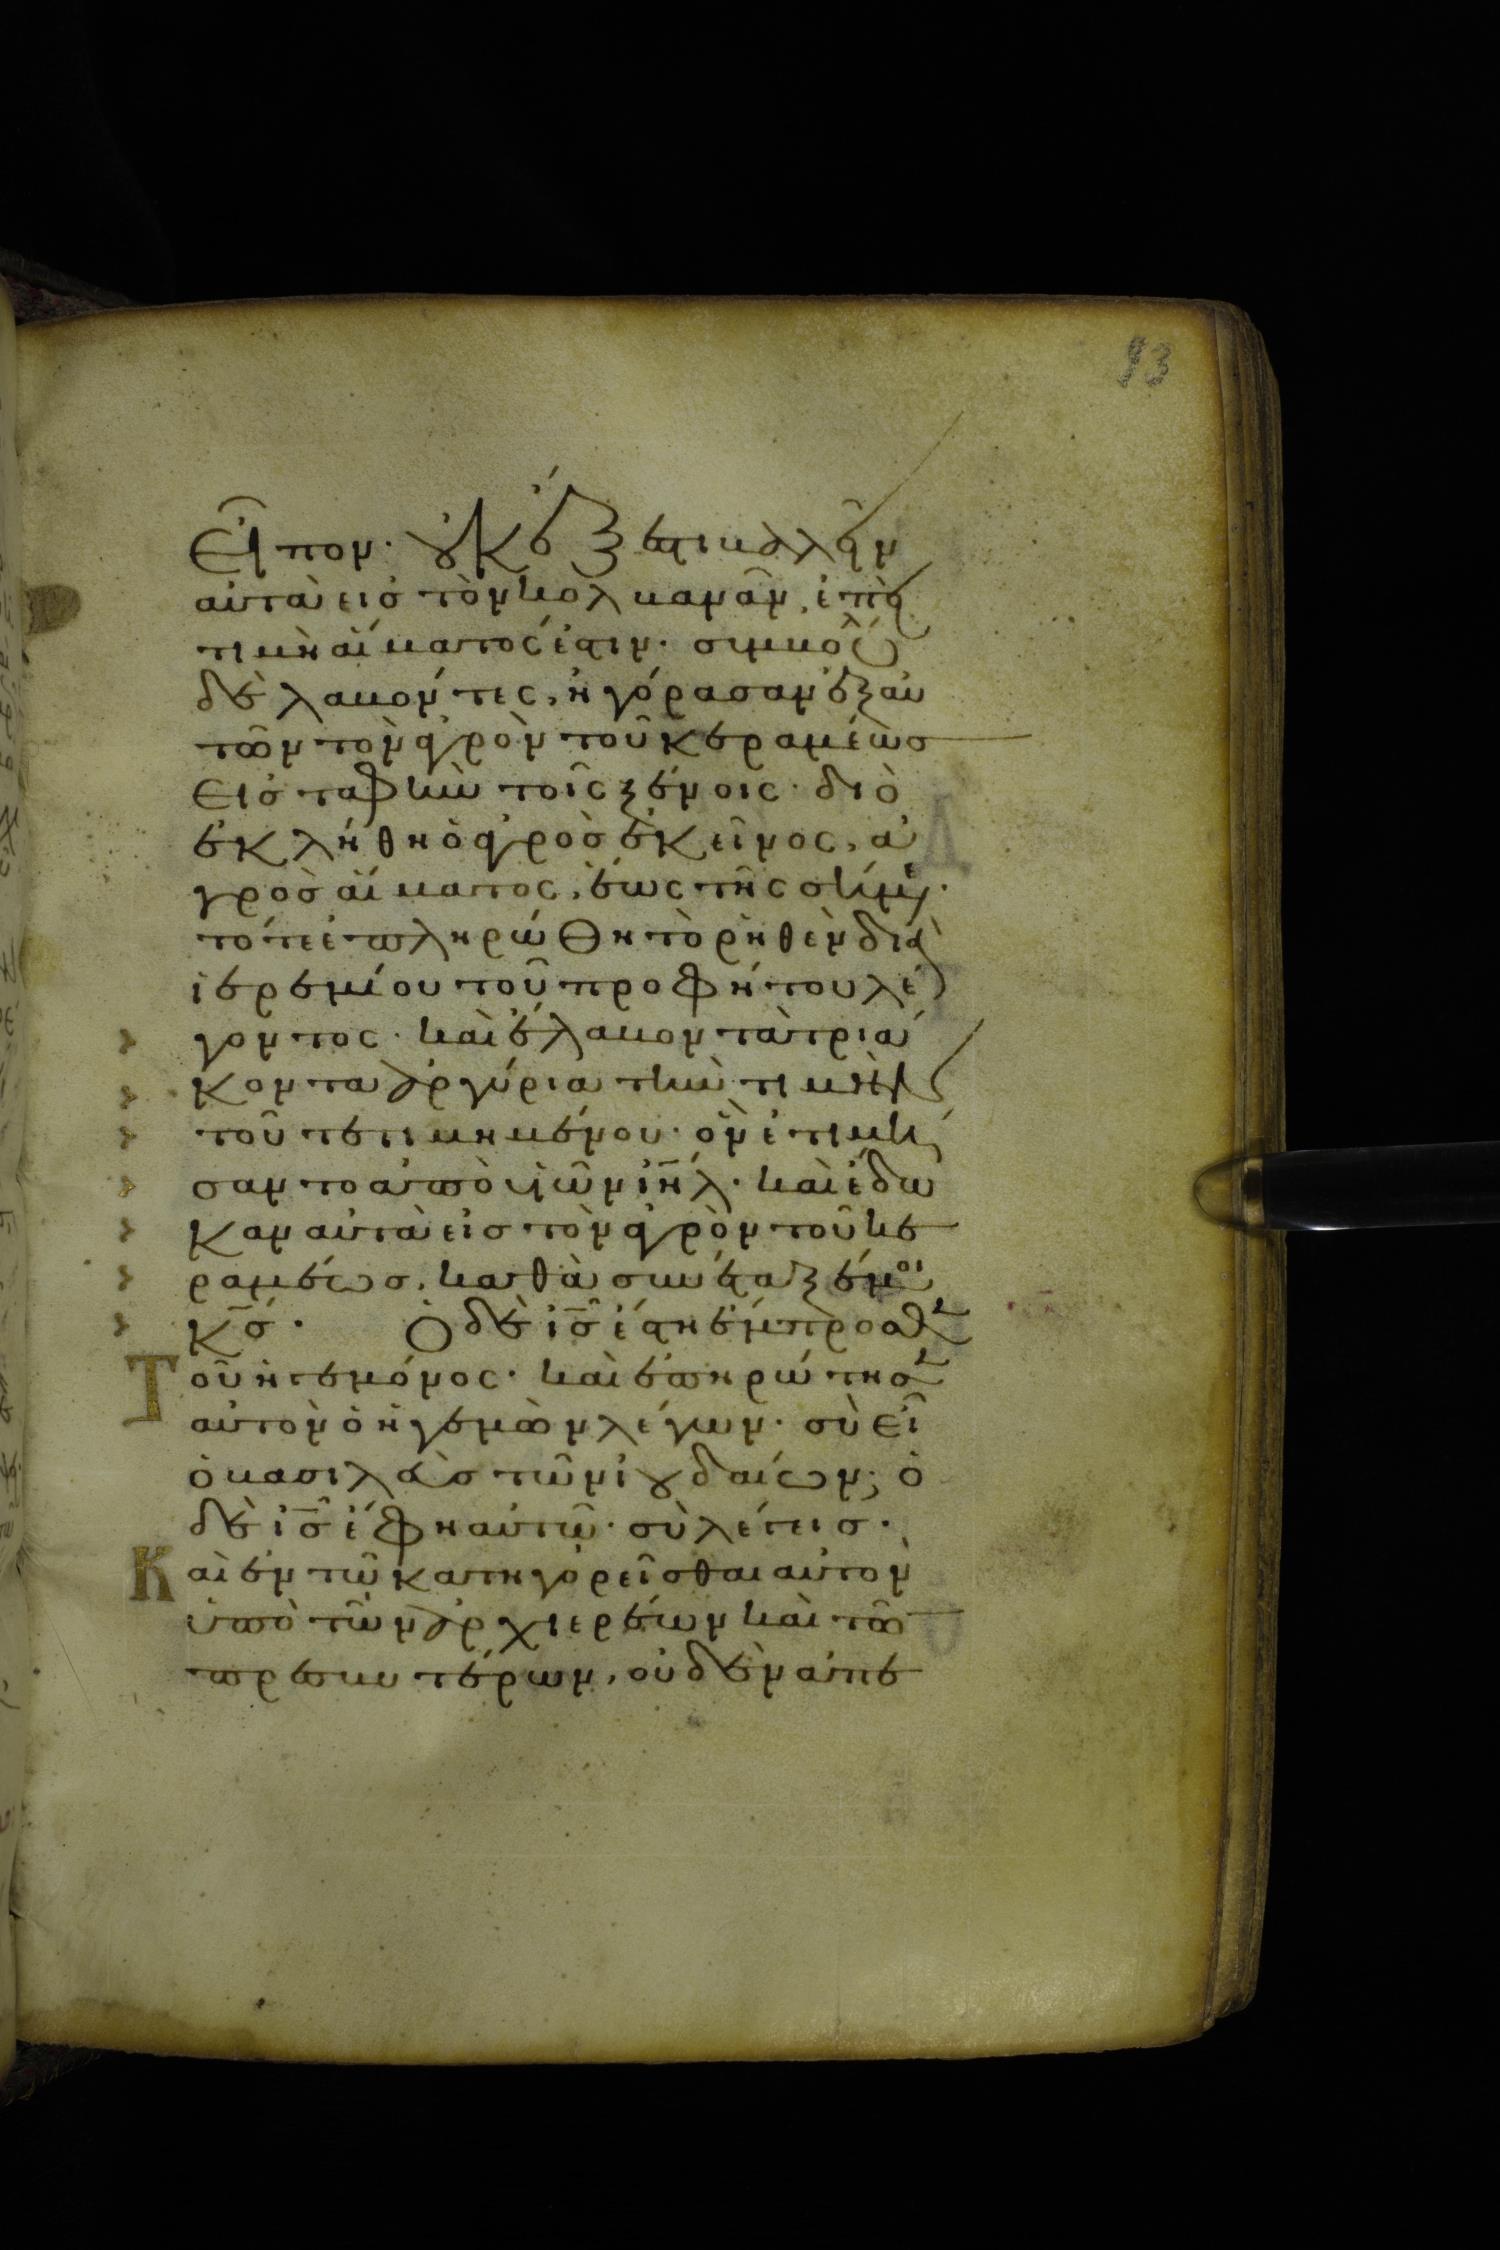 93
εἶπον· οὐκ ἔξεστι βαλεῖν
αὐτὰ εἰς τὸν κολβανᾶν, ἐπεὶ
τιμὴ αἵματός ἐστιν· συμβού
δὲ λαβόντες, ἠγόρασαν ἐξ αὐ
τῶν τὸν ἀγρὸν τοῦ κεραμέως
εἰς ταφὴν τοῖς ξένοις· διὸ
ἐκλήθη ὁ ἀγρὸς ἐκεῖνος, ἀ
γρὸς αἵματος, ἕως τῆς σήμε·
τότε ἐπληρώθη τὸ ῥηθὲν διὰ
ἱερεμίου τοῦ προφήτου λέ
γοντος· καὶ ἔλαβον τὰ τριά
κοντα ἀργύρια τὴν τιμὴν
τοῦ τετιμημένου· ὃν ἐτιμή
σαντο ἀπὸ υἱῶν ιη̅λ· καὶ ἔδω
καν αὐτὰ εἰς τὸν ἀγρὸν τοῦ κε
ραμέως, καθὰ συνέταξέ μοι
κ̅ς· Ὁ δὲ ι̅ς ἔστη ἔμπροσθεν
Τοῦ ἡγεμόνος· καὶ ἐπηρώτησεν
αὐτὸν ὁ ἡγεμὼν λέγων· σὺ εἶ
ὁ βασιλεὺς τῶν ἰουδαίων; ὁ
δὲ ι̅ς ἔφη αὐτῶ· σὺ λέγεις·
Καὶ ἐν τῶ κατηγορεῖσθαι αὐτὸν
ὑπὸ τῶν ἀρχιερέων καὶ τῶν
πρεσβυτέρων, οὐδὲν ἀπε